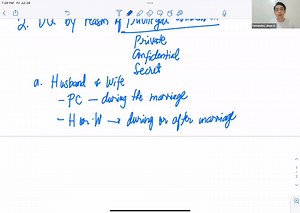 7:38 PM Fri Jul 28
2. DQ by reason of privileged
Private
Confidential
Secret
a. Husband & Wife
- PC — during the marriage
- H or W → during or after marriage